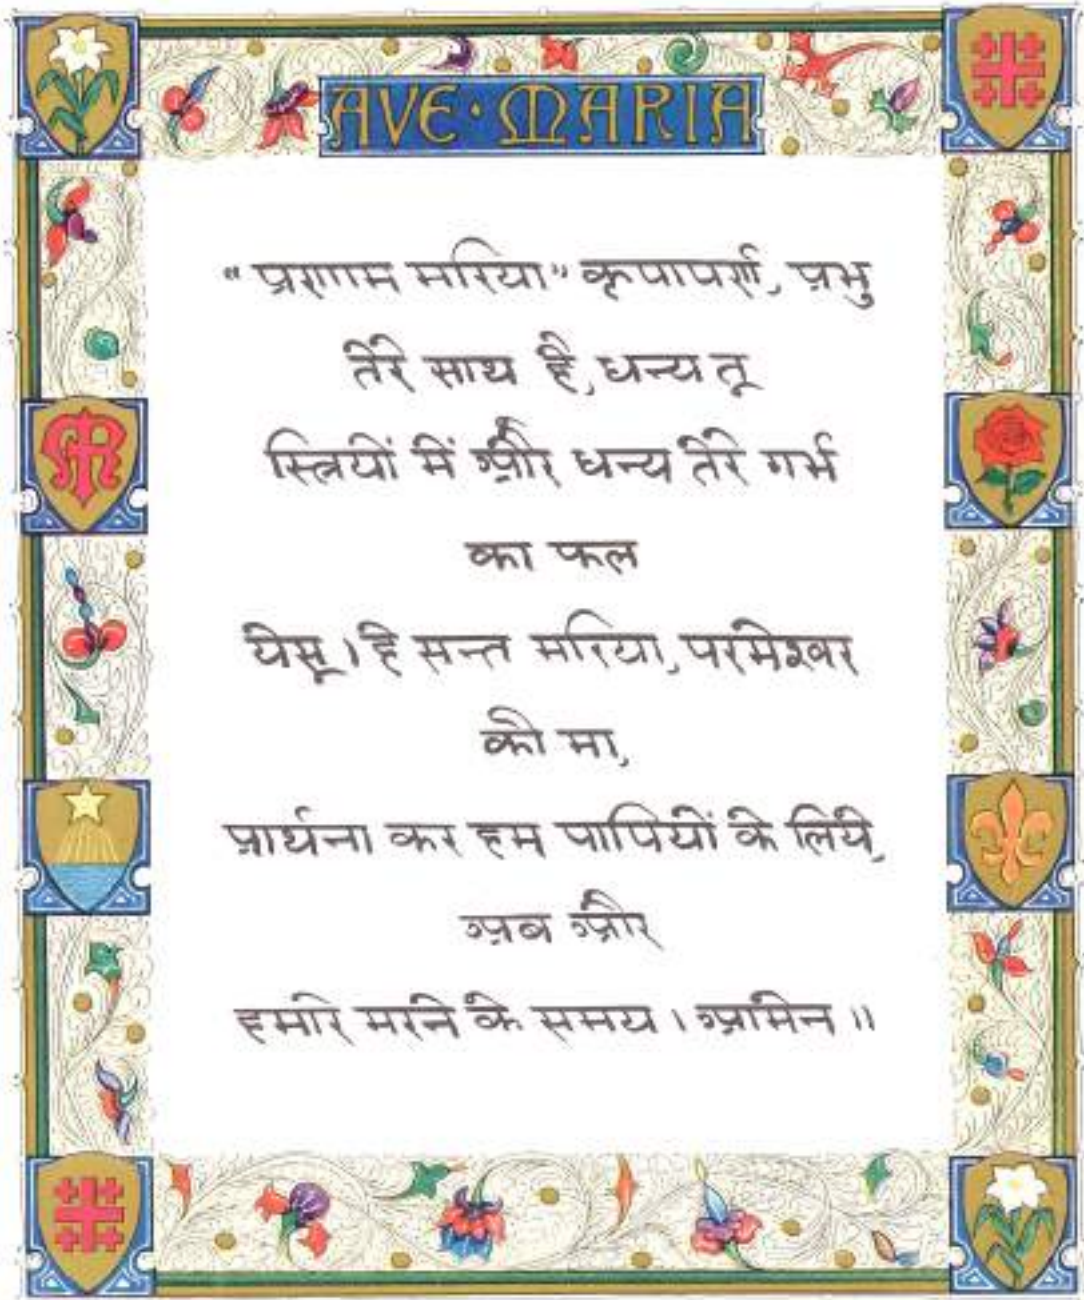 AVE · MARIA
“प्रणाम मरिया” कृपापर्ण, प्रभु
तेरे साथ है, धन्य तू
स्त्रियों में और धन्य तेरे गर्भ
का फल
येसू । हे सन्त मरिया, परमेश्वर
की मा,
प्रार्थना कर हम पापियों के लिये,
अब और
हमारे मरने के समय । आमेन ॥